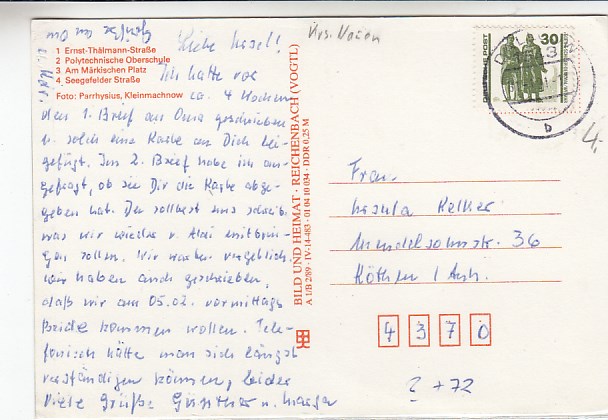 1 Ernst-Thälmann-Straße
2 Polytechnische Oberschule
3 Am Märkischen Platz
4 Seegefelder Straße
Foto: Parrhysius, Kleinmachnow
Liebe Ursel!
Ich hatte vor
ca. 4 Wochen
den 1. Brief an Oma geschrieben
u. solch eine Karte an Dich bei-
gefügt. Im 2. Brief habe ich an-
gefragt, ob sie Dir die Karte abge-
geben hat. Du solltest uns schreib.
was wir wieder v. Aldi mitbrin-
gen sollen. Wir warten vergeblich.
Wir haben auch geschrieben,
daß wir am 05.02. vormittags
Beide kommen wollen. Tele-
fonisch hätte man sich längst
verständigen können, leider
Viele Grüße Günther u.
BILD UND HEIMAT · REICHENBACH (VOGTL)
A 1/B 2/89 · IV-14-483 · 01 04 10 034 · DDR 0,25 M
DEUTSCHE POST
30
b
4,-
Frau
Ursula Kelker
Mendelsohnstr. 36
Köthen / Anh.
4370
? + 72